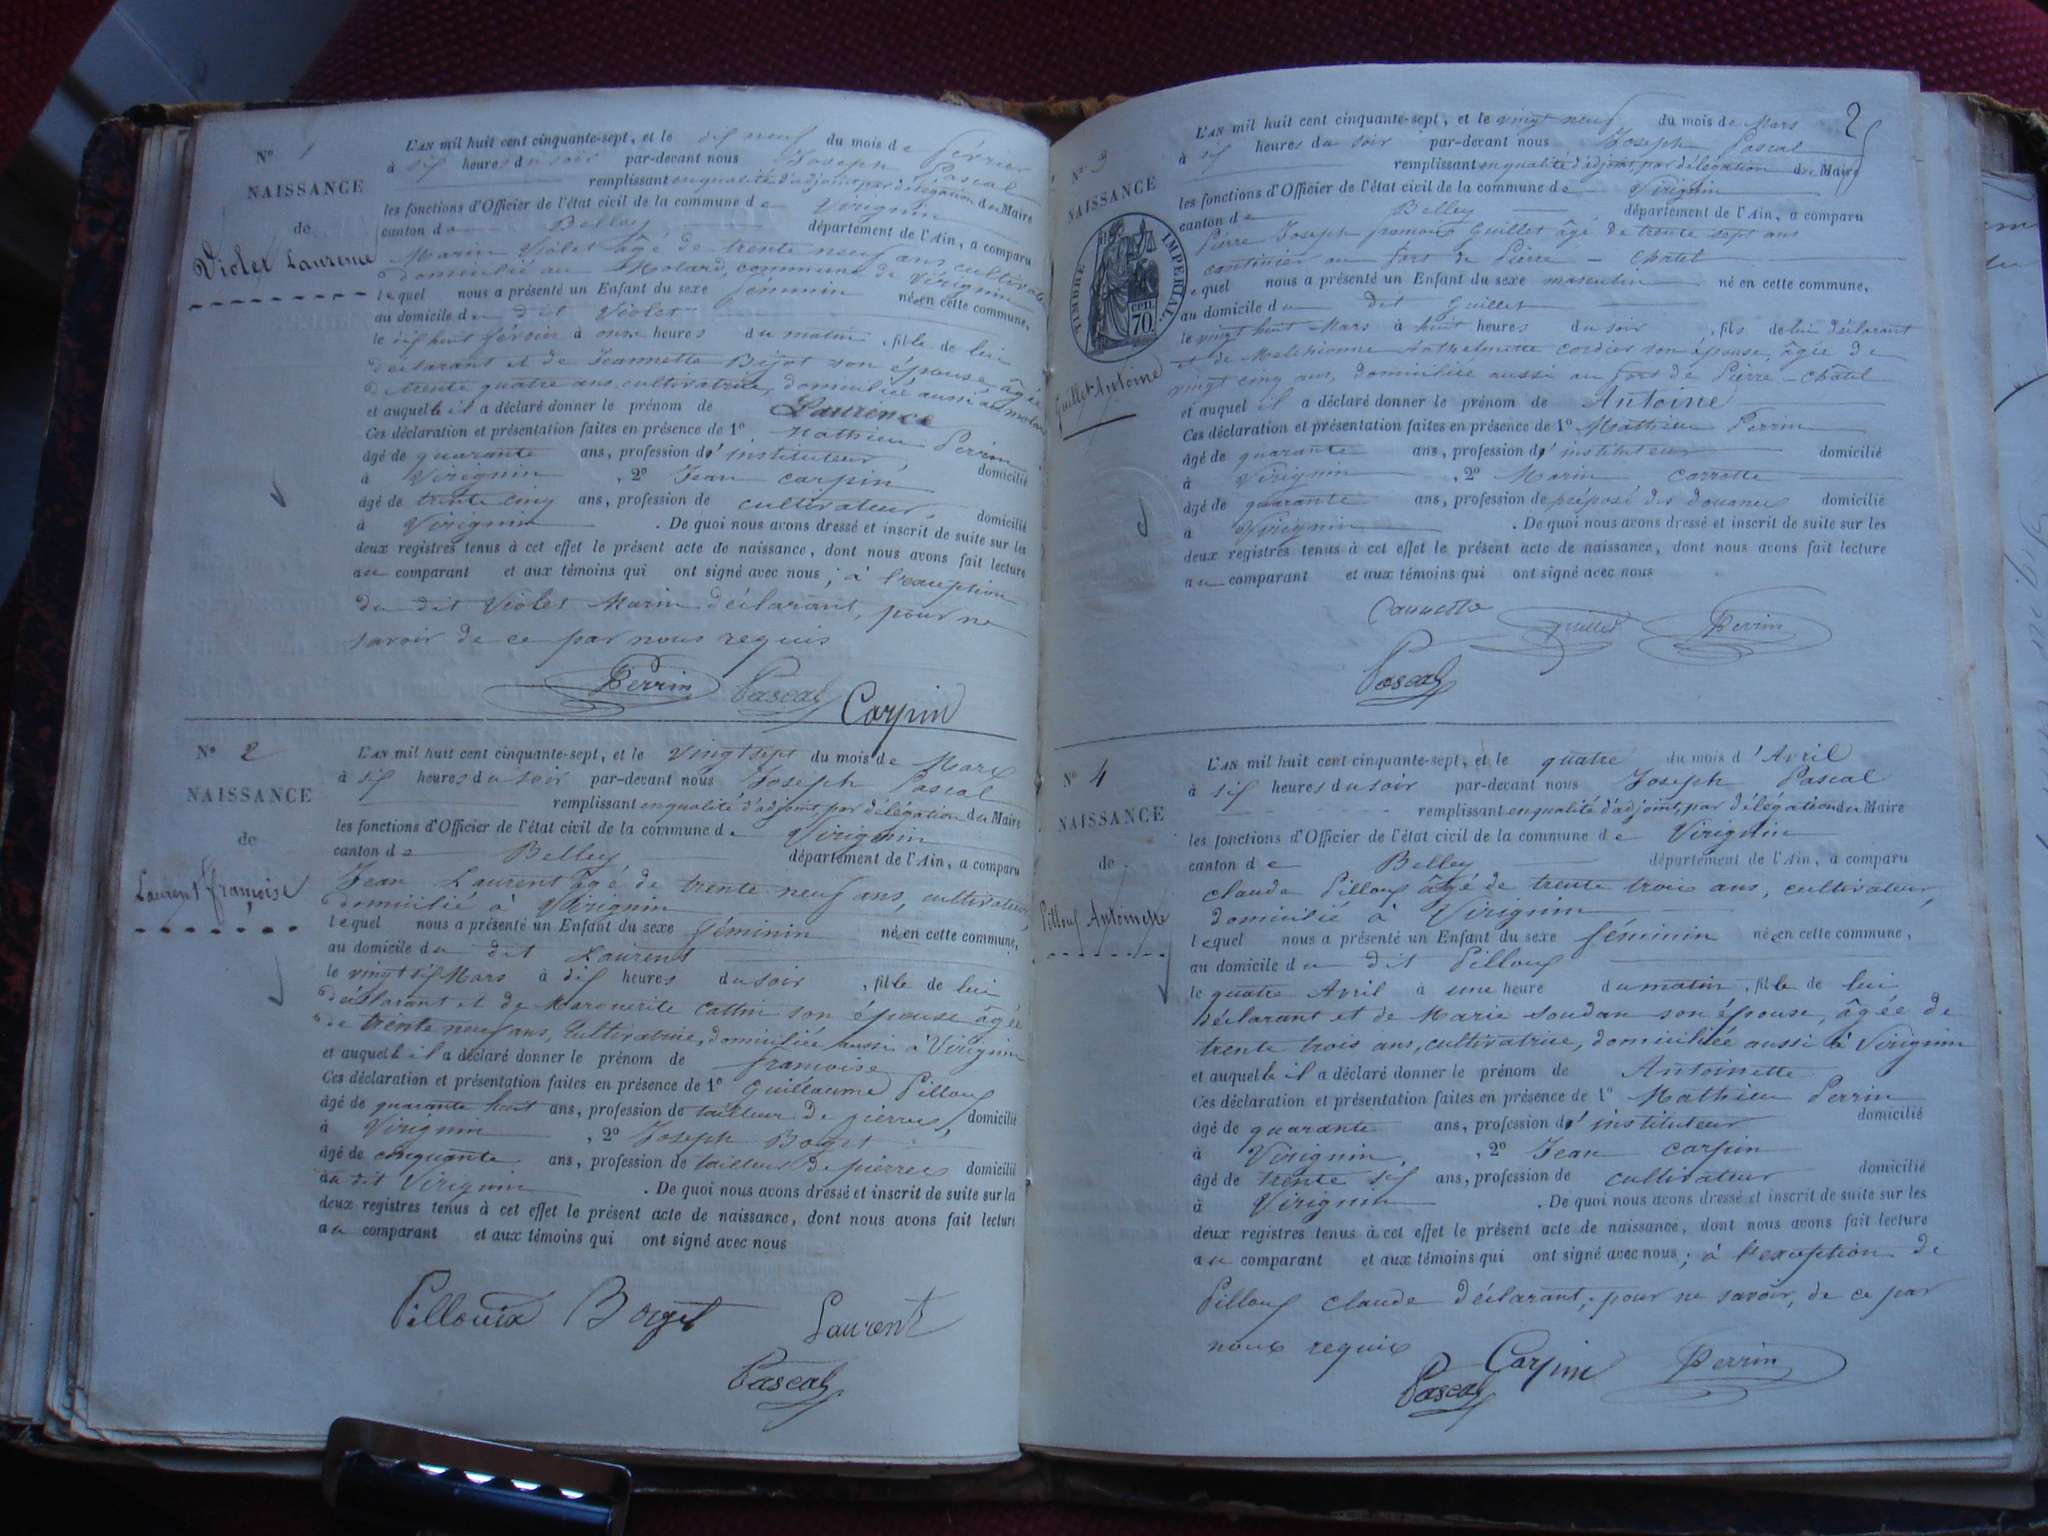 N° 1
NAISSANCE
de
Violet Laurence
L'AN mil huit cent cinquante-sept, et le dix neuf du mois de février
à six heures du soir par-devant nous Joseph Pascal
remplissant en qualité d'adjoint, par délégation du Maire
les fonctions d'Officier de l'état civil de la commune de Virignin
canton de Belley département de l'Ain, a comparu
Marin Violet âgé de trente neuf ans, cultivateur
domicilié au Molard, commune de Virignin
lequel nous a présenté un Enfant du sexe féminin née en cette commune,
au domicile du dit Violet
le dix huit février à onze heures du matin, fille de lui
déclarant et de Jeannette son épouse, âgée
de trente quatre ans, cultivatrice, domiciliée aussi au molard
et auquelle il a déclaré donner le prénom de Laurence
Ces déclaration et présentation faites en présence de 1° Mathieu Perrin
âgé de quarante ans, profession d'instituteur, domicilié
à Virignin, 2° Jean Carpin
âgé de trente cinq ans, profession de cultivateur, domicilié
à Virignin. De quoi nous avons dressé et inscrit de suite sur les
deux registres tenus à cet effet le présent acte de naissance, dont nous avons fait lecture
au comparant et aux témoins qui ont signé avec nous; à l'exception
du dit Violet Marin déclarant, pour ne
savoir de ce par nous requis
Perrin Pascal Carpin
N° 2
NAISSANCE
de
Laurent françoise
L'AN mil huit cent cinquante-sept, et le vingt sept du mois de Mars
à six heures du soir par-devant nous Joseph Pascal
remplissant en qualité d'adjoint, par délégation du Maire
les fonctions d'Officier de l'état civil de la commune de Virignin
canton de Belley département de l'Ain, a comparu
Jean Laurent âgé de trente neuf ans, cultivateur,
domicilié à Virignin
lequel nous a présenté un Enfant du sexe féminin née en cette commune,
au domicile du dit Laurent
le vingt six Mars à dix heures du soir, fille de lui
déclarant et de Marguerite Cattin son épouse âgée
de trente neuf ans, cultivatrice, domiciliée aussi à Virignin
et auquelle il a déclaré donner le prénom de françoise
Ces déclaration et présentation faites en présence de 1° Guillaume Pilloux
âgé de quarante huit ans, profession de tailleur de pierres, domicilié
à Virignin, 2° Joseph Boget
âgé de cinquante ans, profession de tailleur de pierres domicilié
au dit Virignin. De quoi nous avons dressé et inscrit de suite sur les
deux registres tenus à cet effet le présent acte de naissance, dont nous avons fait lecture
au comparant et aux témoins qui ont signé avec nous
Pilloux Boget Laurent
Pascal
2
N° 3
NAISSANCE
TIMBRE IMPERIAL
70 CENT.
Guillet Antoine
L'AN mil huit cent cinquante-sept, et le vingt neuf du mois de Mars
à six heures du soir par-devant nous Joseph Pascal
remplissant en qualité d'adjoint, par délégation du Maire
les fonctions d'Officier de l'état civil de la commune de Virignin
canton de Belley département de l'Ain, a comparu
Pierre Joseph Guillet âgé de trente sept ans
cantinier au fort de Pierre-Châtel
lequel nous a présenté un Enfant du sexe masculin né en cette commune,
au domicile du dit Guillet
le vingt huit Mars à huit heures du soir, fils de lui déclarant
et de Anthelmette Cordier son épouse, âgée de
vingt cinq ans, domiciliée aussi au fort de Pierre-Châtel
et auquel il a déclaré donner le prénom de Antoine
Ces déclaration et présentation faites en présence de 1° Mathieu Perrin
âgé de quarante ans, profession d'instituteur domicilié
à Virignin, 2° Marin
âgé de quarante ans, profession de préposé des douanes domicilié
à Virignin. De quoi nous avons dressé et inscrit de suite sur les
deux registres tenus à cet effet le présent acte de naissance, dont nous avons fait lecture
au comparant et aux témoins qui ont signé avec nous
Guillet Perrin
Pascal
N° 4
NAISSANCE
de
Pilloux Antoinette
L'AN mil huit cent cinquante-sept, et le quatre du mois d'Avril
à six heures du soir par-devant nous Joseph Pascal
remplissant en qualité d'adjoint, par délégation du Maire
les fonctions d'Officier de l'état civil de la commune de Virignin
canton de Belley département de l'Ain, a comparu
Claude Pilloux âgé de trente trois ans, cultivateur,
domicilié à Virignin
lequel nous a présenté un Enfant du sexe féminin née en cette commune,
au domicile du dit Pilloux
le quatre Avril à une heure du matin, fille de lui
déclarant et de Marie Soudan son épouse, âgée de
trente trois ans, cultivatrice, domiciliée aussi à Virignin
et auquelle il a déclaré donner le prénom de Antoinette
Ces déclaration et présentation faites en présence de 1° Mathieu Perrin
âgé de quarante ans, profession d'instituteur domicilié
à Virignin, 2° Jean Carpin
âgé de trente six ans, profession de cultivateur domicilié
à Virignin. De quoi nous avons dressé et inscrit de suite sur les
deux registres tenus à cet effet le présent acte de naissance, dont nous avons fait lecture
au comparant et aux témoins qui ont signé avec nous; à l'exception de
Pilloux Claude déclarant, pour ne savoir, de ce par
nous requis
Pascal Carpin Perrin